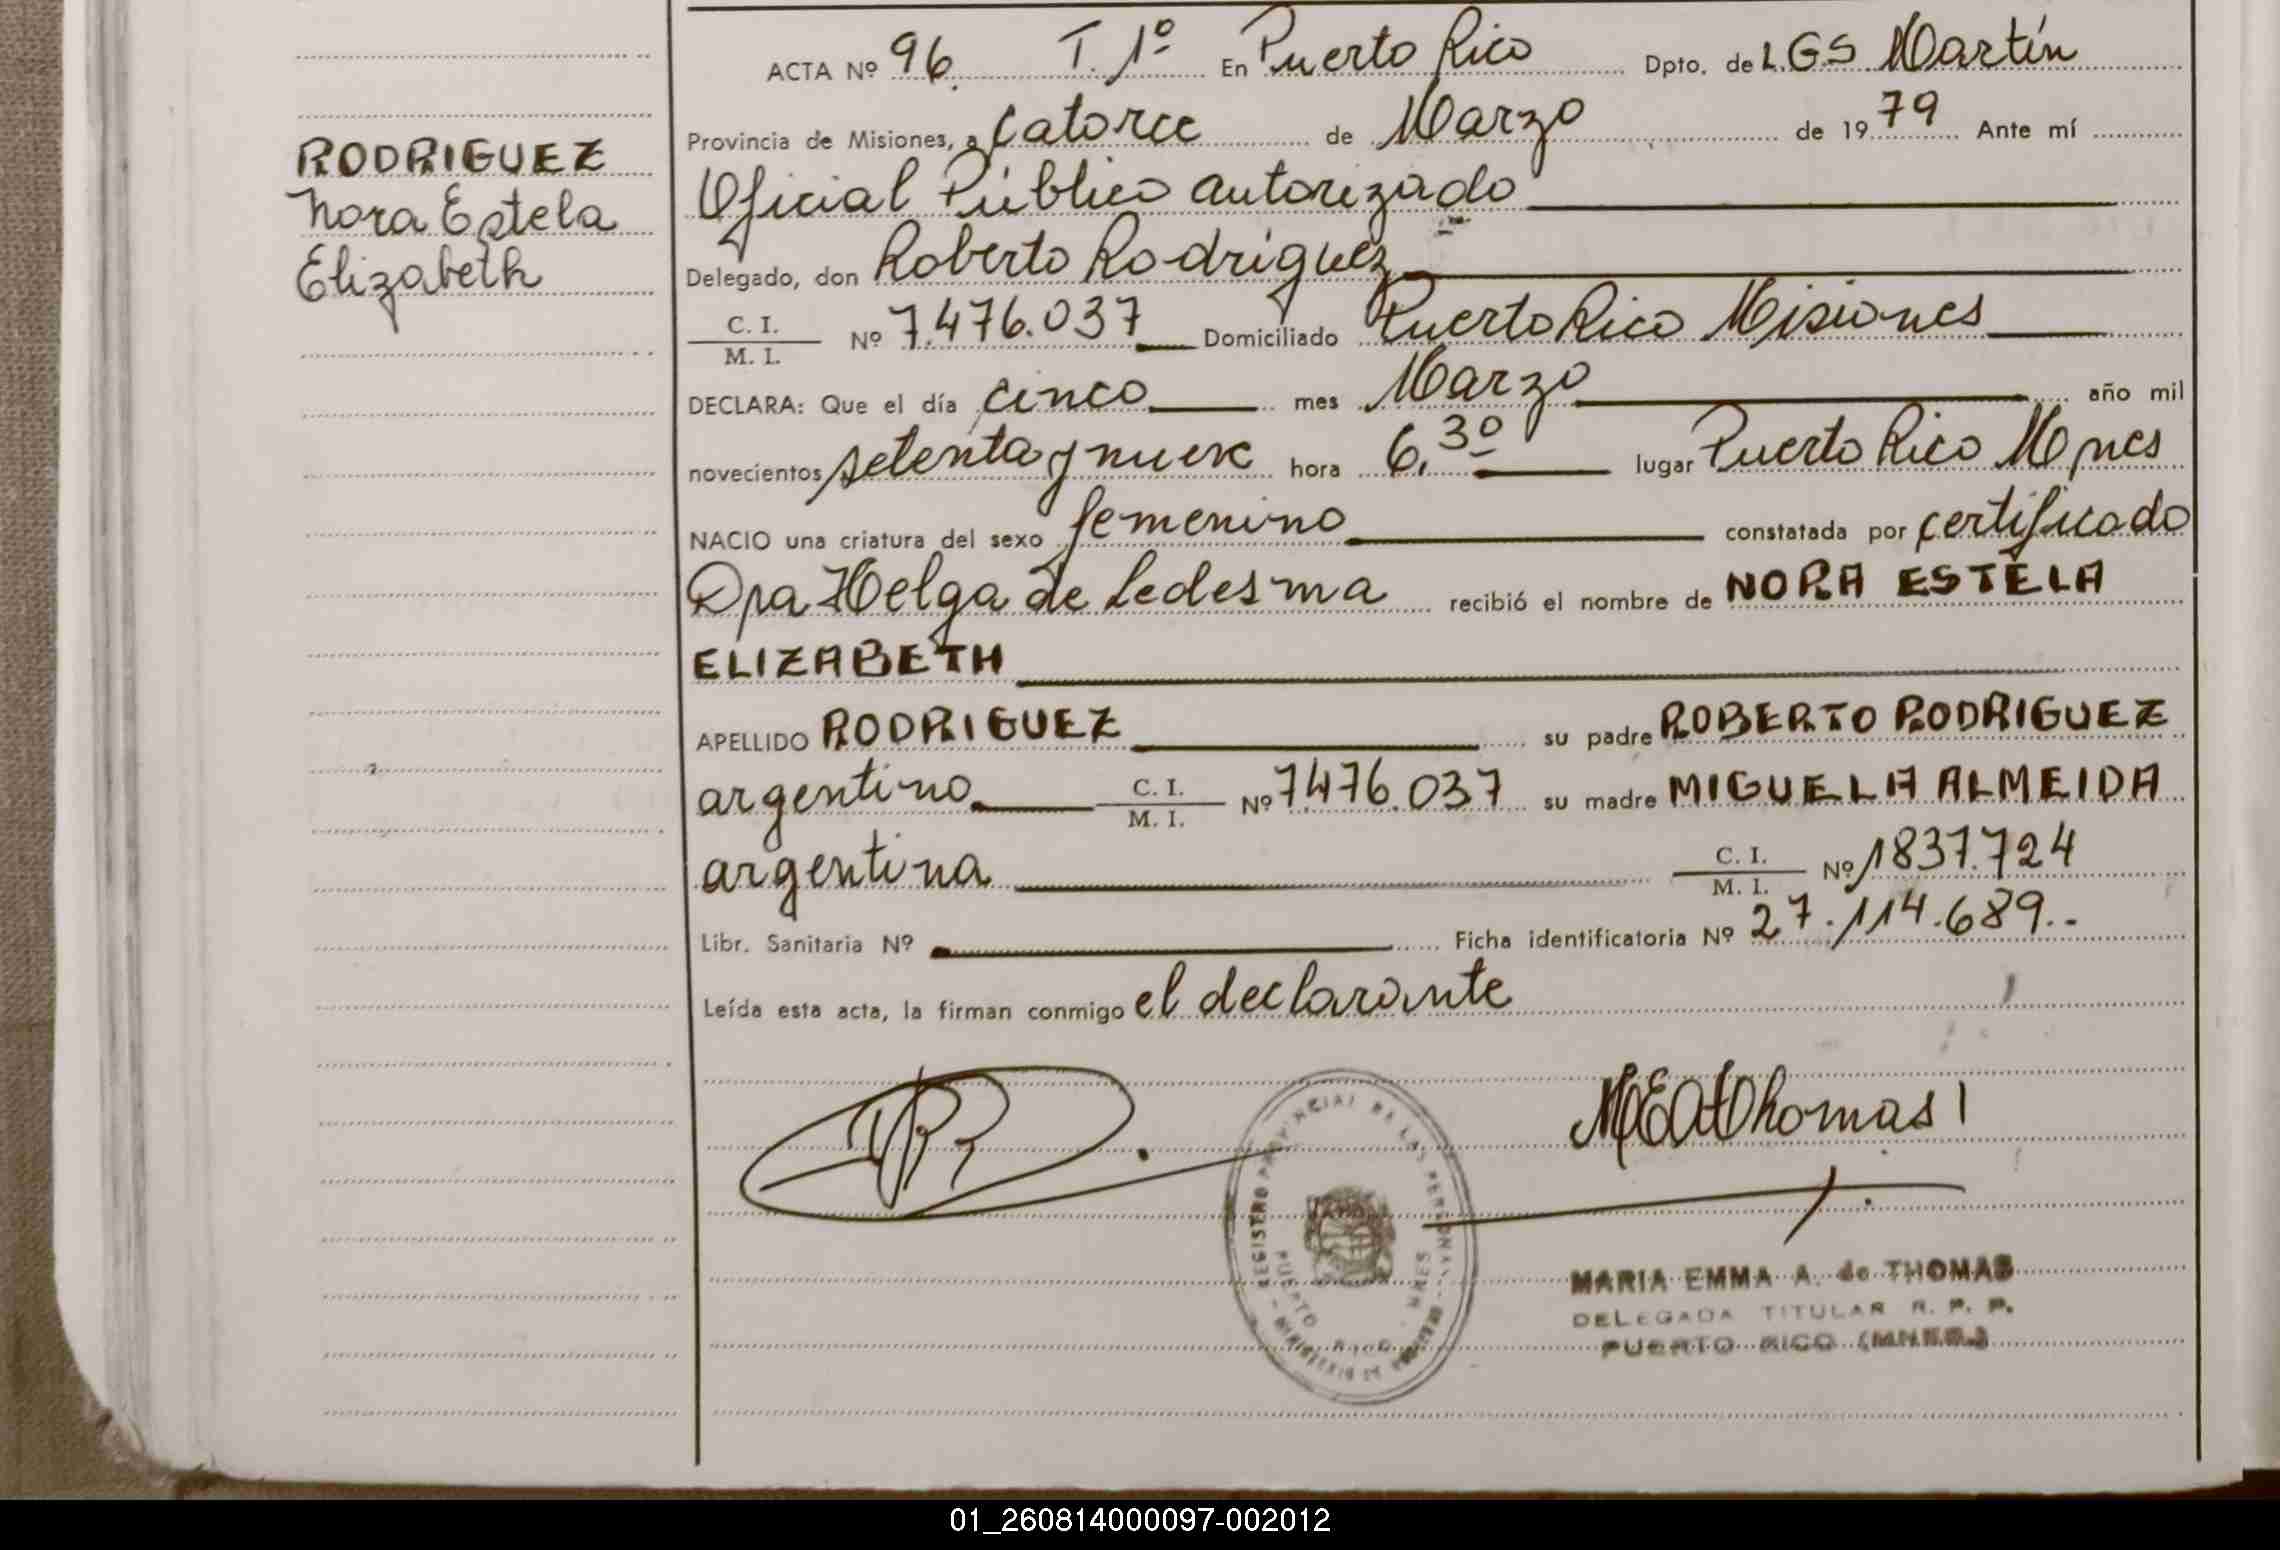 ACTA Nº 96. T. 1º En Puerto Rico Dpto. de L.G.S Martín
Provincia de Misiones, a Catorce de Marzo de 1979 Ante mí
RODRIGUEZ
Nora Estela
Elizabeth
Oficial Público autorizado
Delegado, don Roberto Rodríguez
C. I.
M. I. Nº 7.476.037 Domiciliado Puerto Rico Misiones
DECLARA: Que el día cinco mes Marzo año mil
novecientos setenta y nueve hora 6,30 lugar Puerto Rico Mnes
NACIO una criatura del sexo femenino constatada por certificado
Dra Helga de Ledesma recibió el nombre de NORA ESTELA
ELIZABETH
APELLIDO RODRIGUEZ su padre ROBERTO RODRIGUEZ
argentino C. I.
M. I. Nº 7.476.037 su madre MIGUELA ALMEIDA
argentina C. I.
M. I. Nº 1837.724
Libr. Sanitaria Nº Ficha identificatoria Nº 27.114.689.-
Leída esta acta, la firman conmigo el declarante
MEAThomas
REGISTRO PROVINCIAL DE LAS PERSONAS
PUERTO RICO MNES
MARIA EMMA A. de THOMAS
DELEGADA TITULAR R. P. P.
PUERTO RICO (MNES.)
01_260814000097-002012